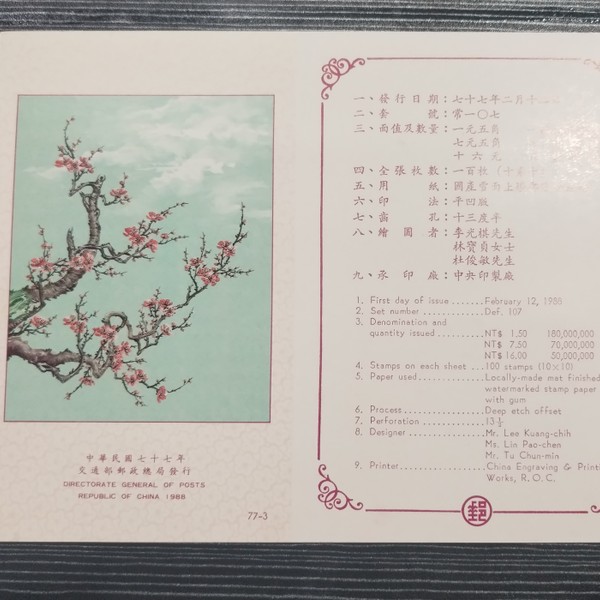 中華民國七十七年
交通部郵政總局發行
DIRECTORATE GENERAL OF POSTS
REPUBLIC OF CHINA 1988
77-3
一、發行日期：七十七年二月十二
二、套號：常一〇七
三、面值及數量：一元五角
七元五角
十六元
四、全張枚數：一百枚
五、用紙：國產雪面上膠
六、印法：平凹版
七、齒孔：十三度半
八、繪圖者：李光棋先生
林寶貞女士
杜俊敏先生
九、承印廠：中央印製廠
1. First day of issue.......February 12, 1988
2. Set number..............Def. 107
3. Denomination and
quantity issued...........NT$ 1.50 180,000,000
NT$ 7.50 70,000,000
NT$ 16.00 50,000,000
4. Stamps on each sheet ...100 stamps (10×10)
5. Paper used..............Locally-made mat finished
watermarked stamp paper
with gum
6. Process.................Deep etch offset
7. Perforation.............13½
8. Designer................Mr. Lee Kuang-chih
Ms. Lin Pao-chen
Mr. Tu Chun-min
9. Printer.................China Engraving & Printi
Works, R.O.C.
郵